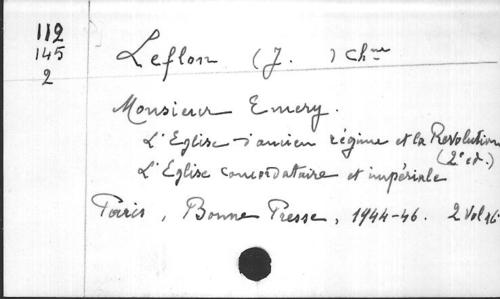 112
145
2
Leflon (J. ) Chne
Monsieur Emery.
L'Eglise d'ancien régime et la Revolution
(2e ed.)
L'Eglise concordataire et impériale
Paris, Bonne Presse, 1944-46. 2 Vol 16°